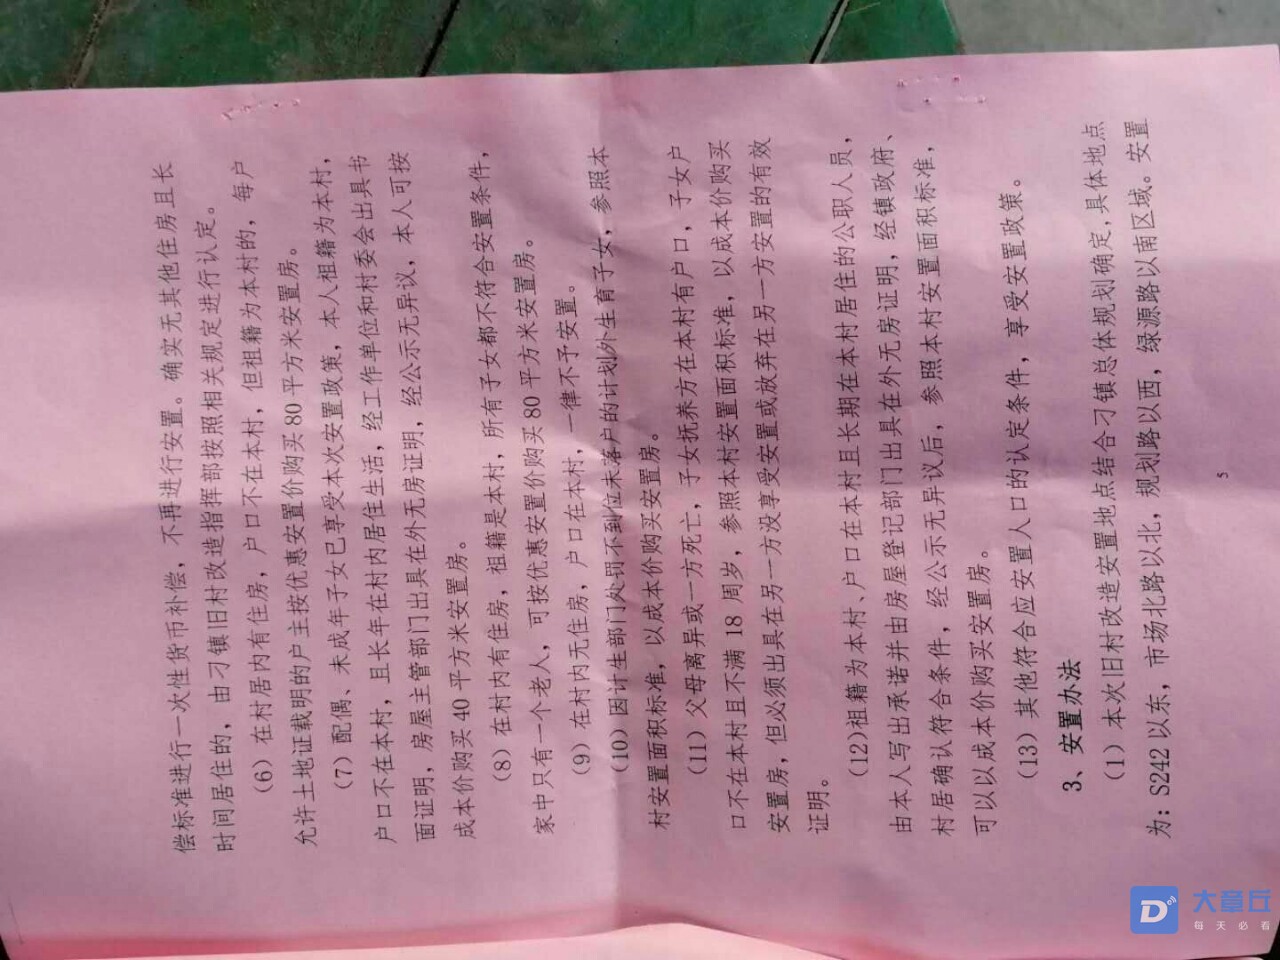 偿标准进行一次性货币补偿，不再进行安置。确实无其他住房且长
时间居住的，由刁镇旧村改造指挥部按照相关规定进行认定。
（6）在村居内有住房，户口不在本村，但祖籍为本村的，每户
允许土地证载明的户主按优惠安置价购买 80 平方米安置房。
（7）配偶、未成年子女已享受本次安置政策，本人祖籍为本村，
户口不在本村，且长年在村内居住生活，经工作单位和村委会出具书
面证明，房屋主管部门出具在外无房证明，经公示无异议，本人可按
成本价购买 40 平方米安置房。
（8）在村内有住房，祖籍是本村，所有子女都不符合安置条件，
家中只有一个老人，可按优惠安置价购买 80 平方米安置房。
（9）在村内无住房，户口在本村，一律不予安置。
（10）因计生部门处罚不到位未落户的计划外生育子女，参照本
村安置面积标准，以成本价购买安置房。
（11）父母离异或一方死亡，子女抚养方在本村有户口，子女户
口不在本村且不满 18 周岁，参照本村安置面积标准，以成本价购买
安置房，但必须出具在另一方没享受安置或放弃在另一方安置的有效
证明。
（12）祖籍为本村、户口在本村且长期在本村居住的公职人员，
由本人写出承诺并由房屋登记部门出具在外无房证明，经镇政府、
村居确认符合条件，经公示无异议后，参照本村安置面积标准，
可以以成本价购买安置房。
（13）其他符合应安置人口的认定条件，享受安置政策。
3、安置办法
（1）本次旧村改造安置地点结合刁镇总体规划确定，具体地点
为：S242 以东，市场北路以北，规划路以西，绿源路以南区域。安置
5
大章丘
每天必看